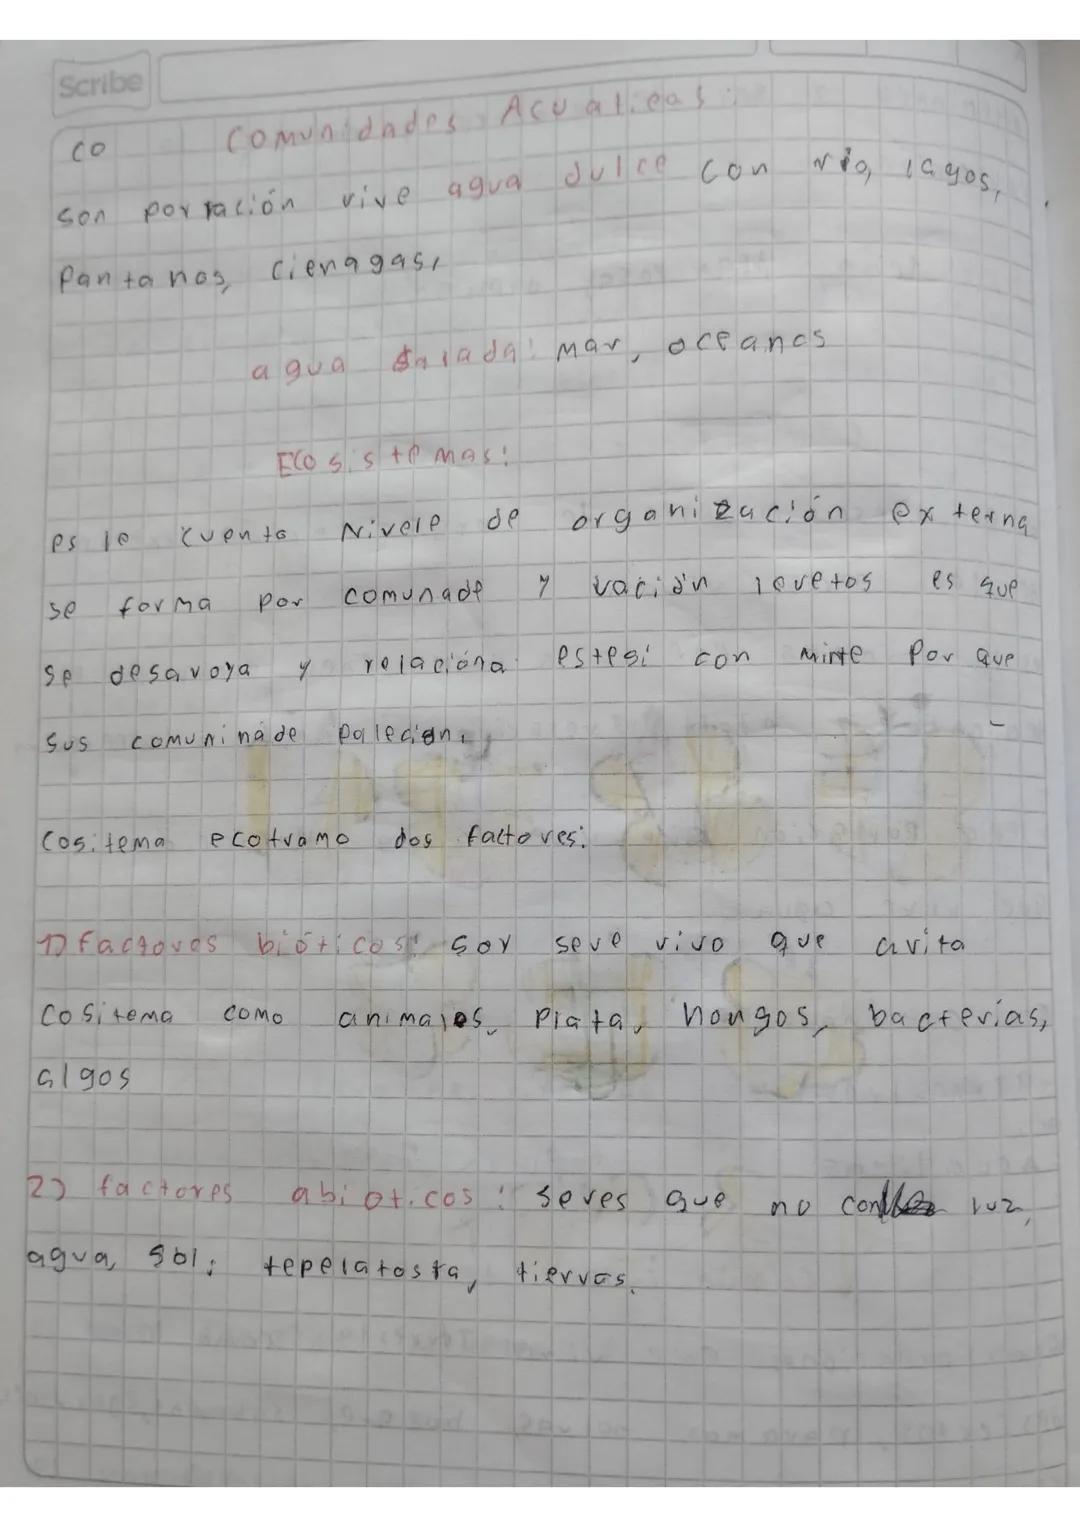 Scribe
co Comunidades Acuaticas:
son porración vive agua dulce con río, lagos,
Pantanos, cienagas,
agua salada: mar, oceanos
Ecosistemas:
es le cuento Nivele de organización externa
se forma por comunade y vación levetos es que
se desavoya y relacióna estesi con minte Por que
sus comuninade palecian,
Cositema ecotramo dos factores:
1) Factores bióticos: sor seve vivo que avita
cositema como animales, Plata, hongos, bacterias,
algos
2) factores abióticos: seres que no con luz,
agua, sol; tepelatosta, tierras.